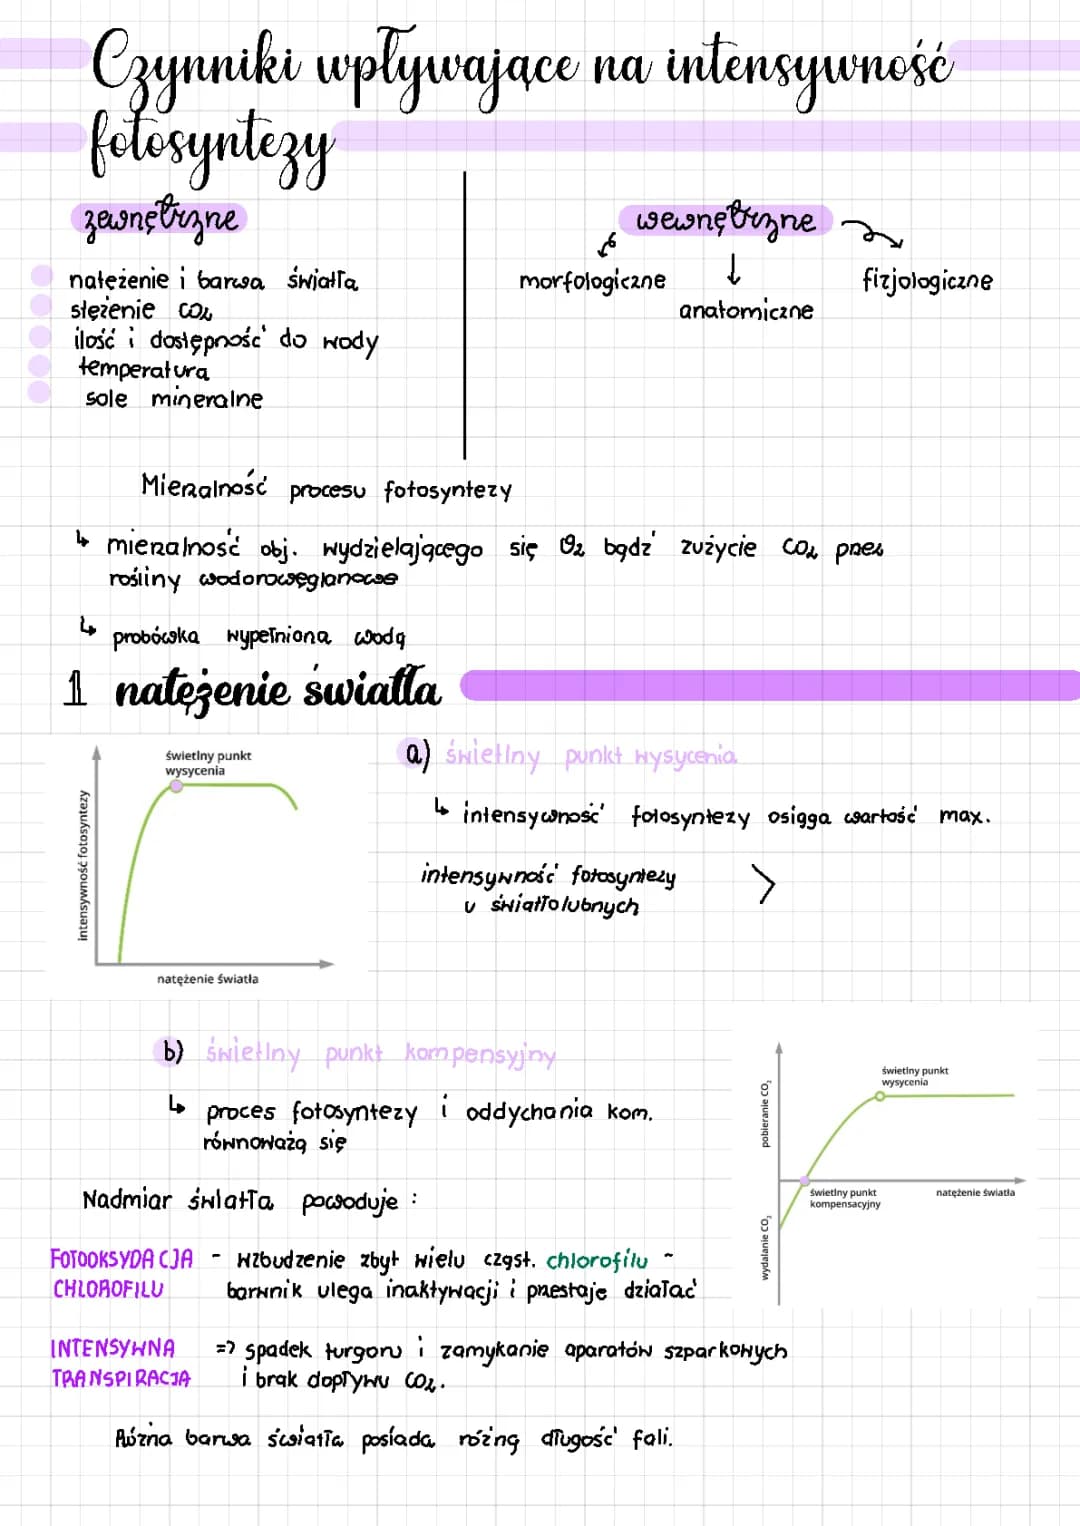 Czynniki wpływające na intensywność
fotosyntezy
zewnętrzne
natężenie i barwa światła
stężenie CO₂
ilość i dostępność do wody
temperatura
sole mineralne
wewnętrzne
morfologiczne
anatomiczne
fizjologiczne
Mierzalność procesu fotosyntezy
↳ mierzalność obj. wydzielającego się O₂ bądź zużycie CO₂ przez
rośliny wodorowęglanowe
↳ probówka wypełniona wodą
1 natężenie światła
świetlny punkt
wysycenia
intensywność fotosyntezy
natężenie światła
a) świetlny punkt wysycenia
↳ intensywność fotosyntezy osiąga wartość max.
intensywność fotosyntezy >
u światłolubnych
b) świetlny punkt kompensyjny
↳ proces fotosyntezy i oddychania kom.
równoważą się
świetlny punkt
wysycenia
pobieranie CO₂
świetlny punkt
kompensacyjny
natężenie światła
wydalanie CO₂
Nadmiar światła powoduje :
FOTOOKSYDACJA - wzbudzenie zbyt wielu cząst. chlorofilu -
CHLOROFILU barwnik ulega inaktywacji i przestaje działać
INTENSYWNA => spadek turgoru i zamykanie aparatów szparkowych
TRANSPIRACJA i brak dopływu CO₂.
Różna barwa światła posiada różną długość fali.